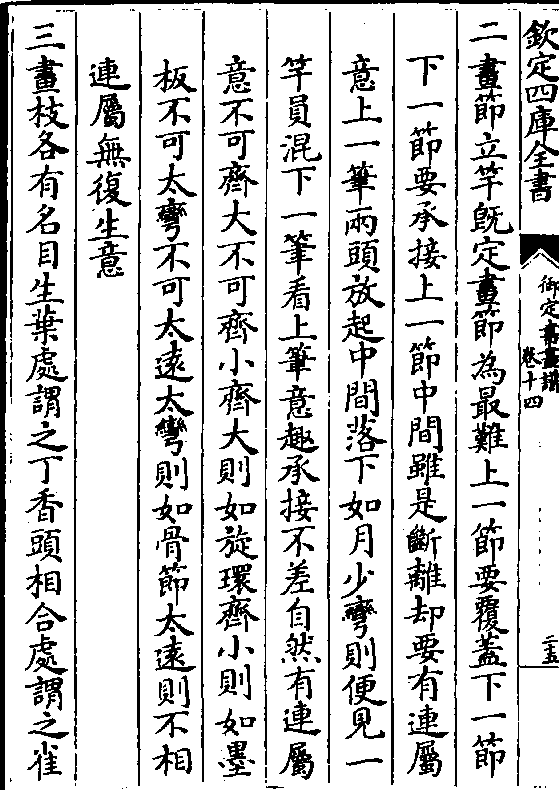 欽定四庫全書
御定書畫譜
卷十四
三五
二畫節立竿旣定畫節為最難上一節要覆蓋下一節
下一節要承接上一節中間雖是斷離却要有連屬
意上一筆兩頭放起中間落下如月少彎則便見一
竿員混下一筆看上筆意趣承接不差自然有連屬
意不可齊大不可齊小齊大則如旋環齊小則如墨
板不可太彎不可太遠太彎則如骨節太遠則不相
連屬無復生意
三畫枝各有名目生葉處謂之丁香頭相合處謂之雀